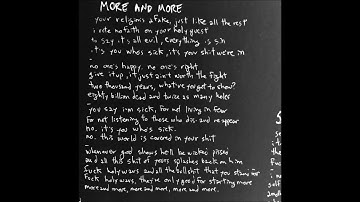 MORE AND MORE
your religion's a fake, just like all the rest
i vote no faith on your holy quest
to say it's all evil, everything is sin
it's you who's sick, it's your shit were in
-
no one's happy. no one's right
give it up, it just ain't worth the fight
two thousand years, what've you got to show?
eighty billion dead and twice as many holes
-
you say i'm sick, for not living in fear
for not listening to those who dis- and re appear
no. it's you who's sick.
no. this world is covered in your shit
-
whenever god shows he'll be wicked pissed
and all this shit of yours splashes back on him
fuck holy wars and all the bullshit that you stand for
fuck holy wars, they're only good for starting more
more and more, more and more, more and more.